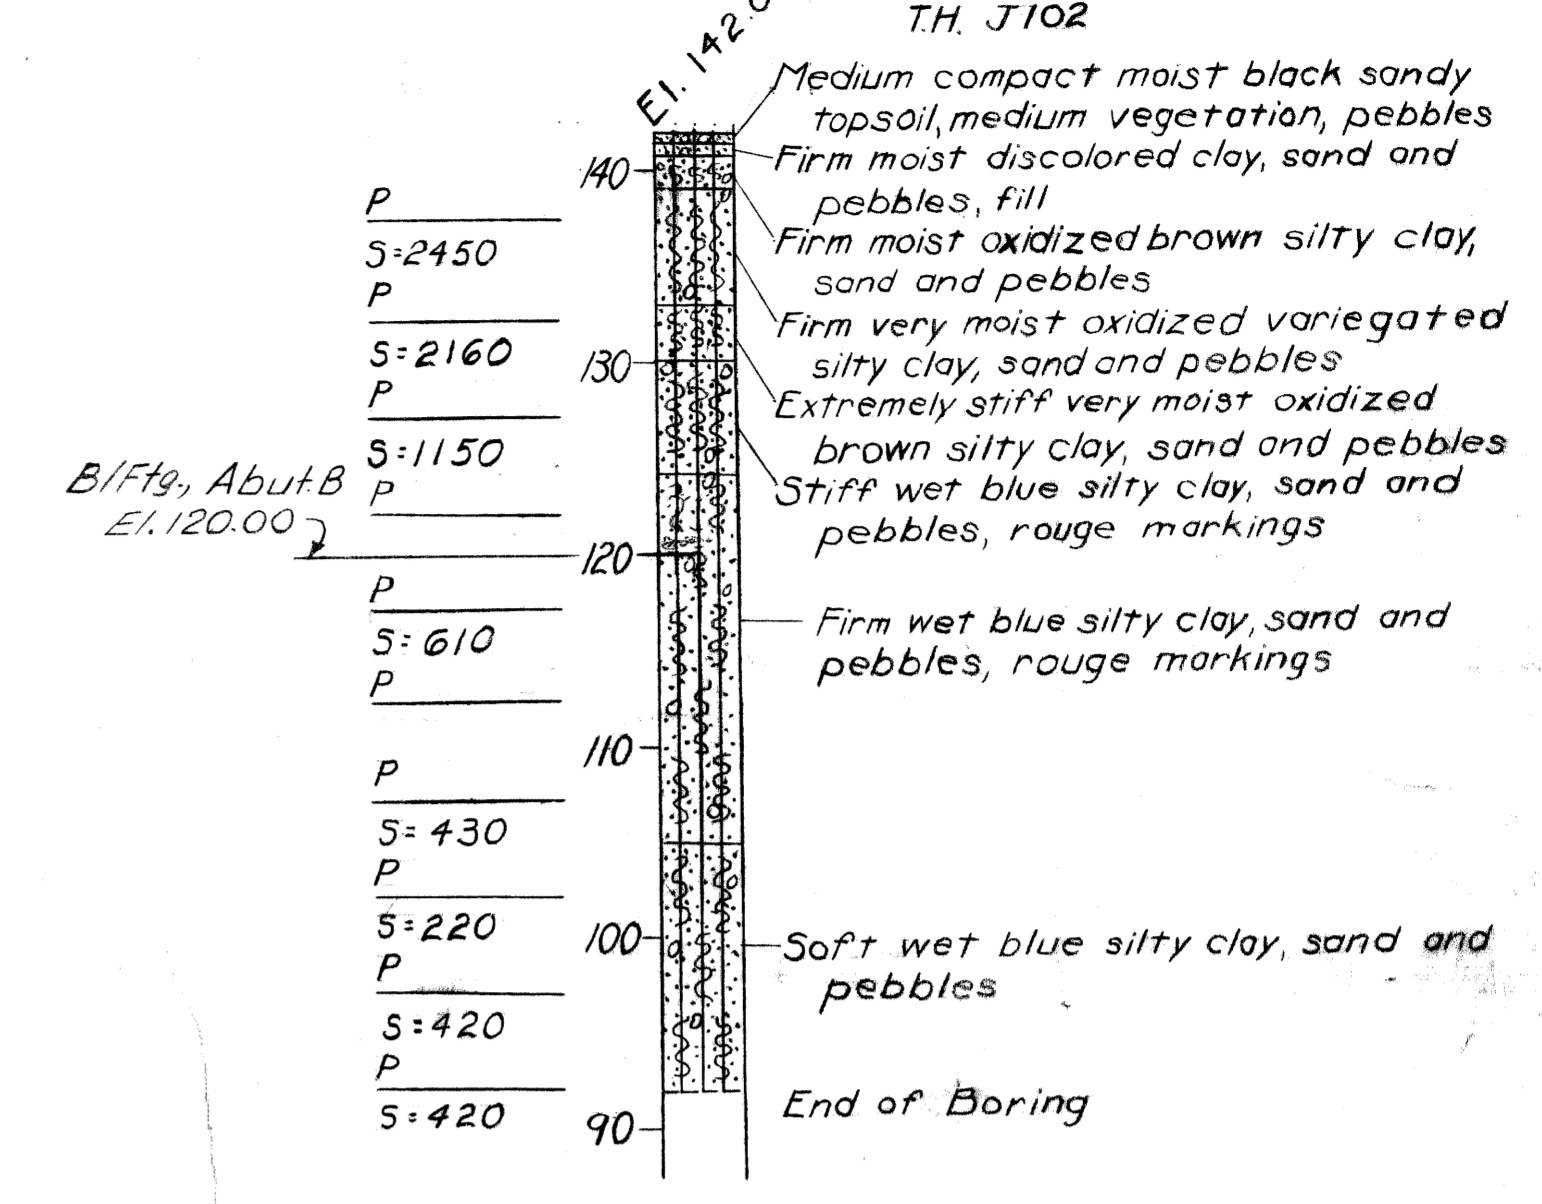 T.H. J102
El. 142.0
Medium compact moist black sandy
topsoil, medium vegetation, pebbles
Firm moist discolored clay, sand and
pebbles, fill
Firm moist oxidized brown silty clay,
sand and pebbles
Firm very moist oxidized variegated
silty clay, sand and pebbles
Extremely stiff very moist oxidized
brown silty clay, sand and pebbles
Stiff wet blue silty clay, sand and
pebbles, rouge markings
Firm wet blue silty clay, sand and
pebbles, rouge markings
Soft wet blue silty clay, sand and
pebbles
End of Boring
140
130
120
110
100
90
P
S=2450
P
S=2160
P
S=1150
P
B/Ftg., Abut. B
El. 120.00
P
S=610
P
P
S=430
P
S=220
P
S=420
P
S=420